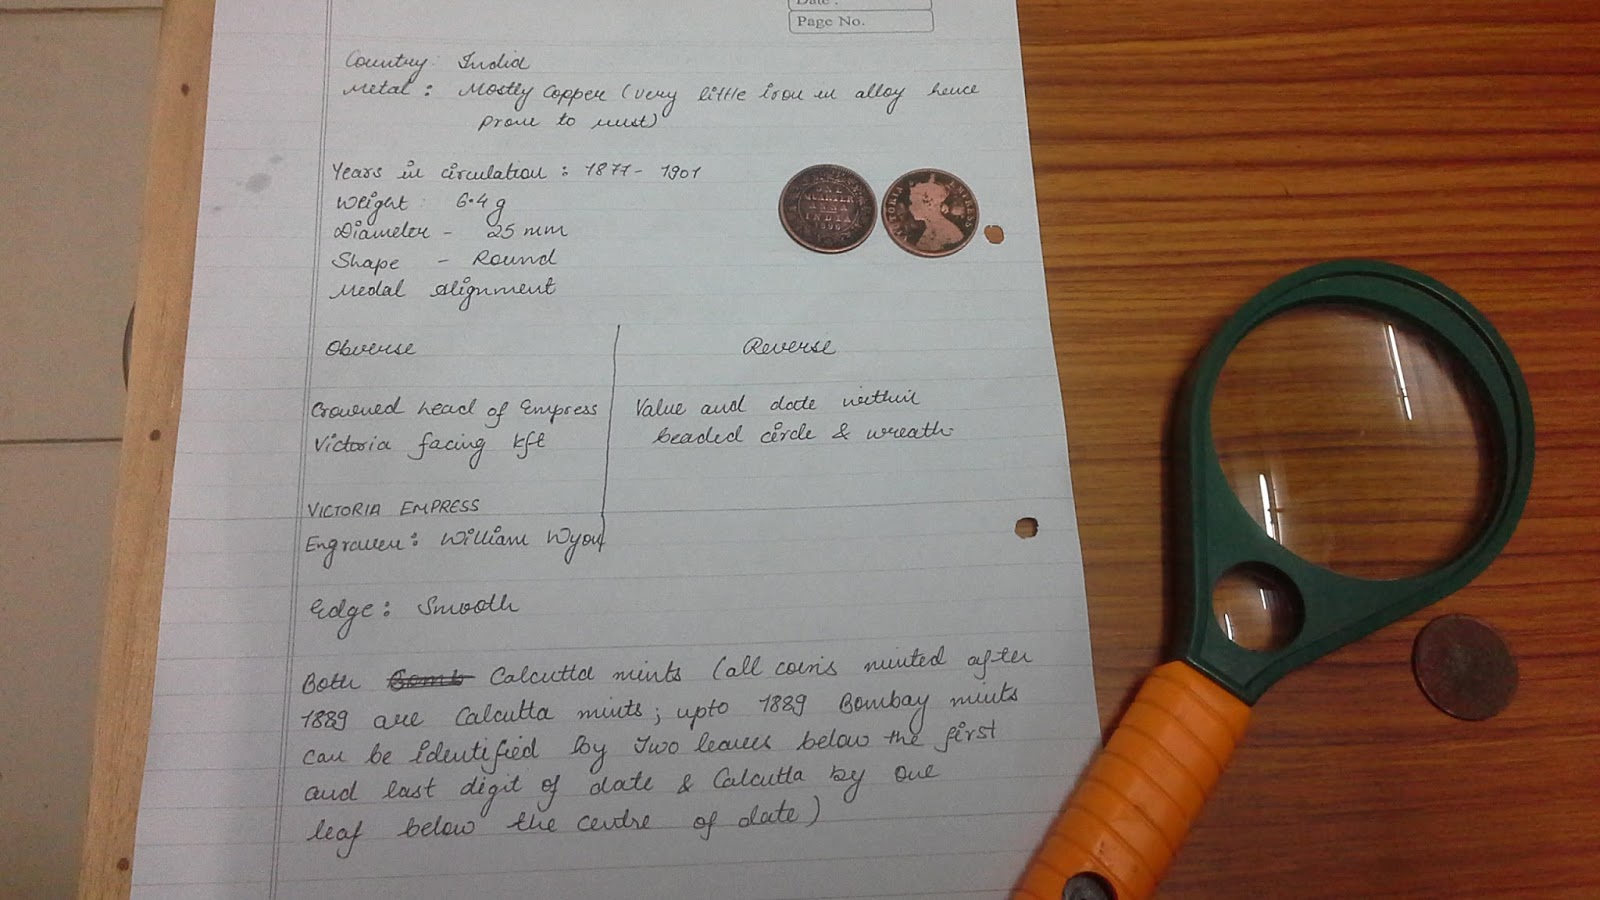 Date :
Page No.
Country: India
Metal : Mostly Copper (very little iron in alloy hence
prone to rust)
Years in circulation : 1877 - 1901
Weight : 6.4 g
Diameter - 25 mm
Shape - Round
Medal Alignment
ONE
QUARTER
ANNA
INDIA
VICTORIA EMPRESS
Obverse Reverse
Crowned head of Empress Value and date within
Victoria facing left beaded circle & wreath
VICTORIA EMPRESS
Engraver : William Wyon
Edge : Smooth
Both Calcutta mints (all coins minted after
1889 are Calcutta mints ; upto 1889 Bombay mints
can be identified by two leaves below the first
and last digit of date & Calcutta by one
leaf below the centre of date)